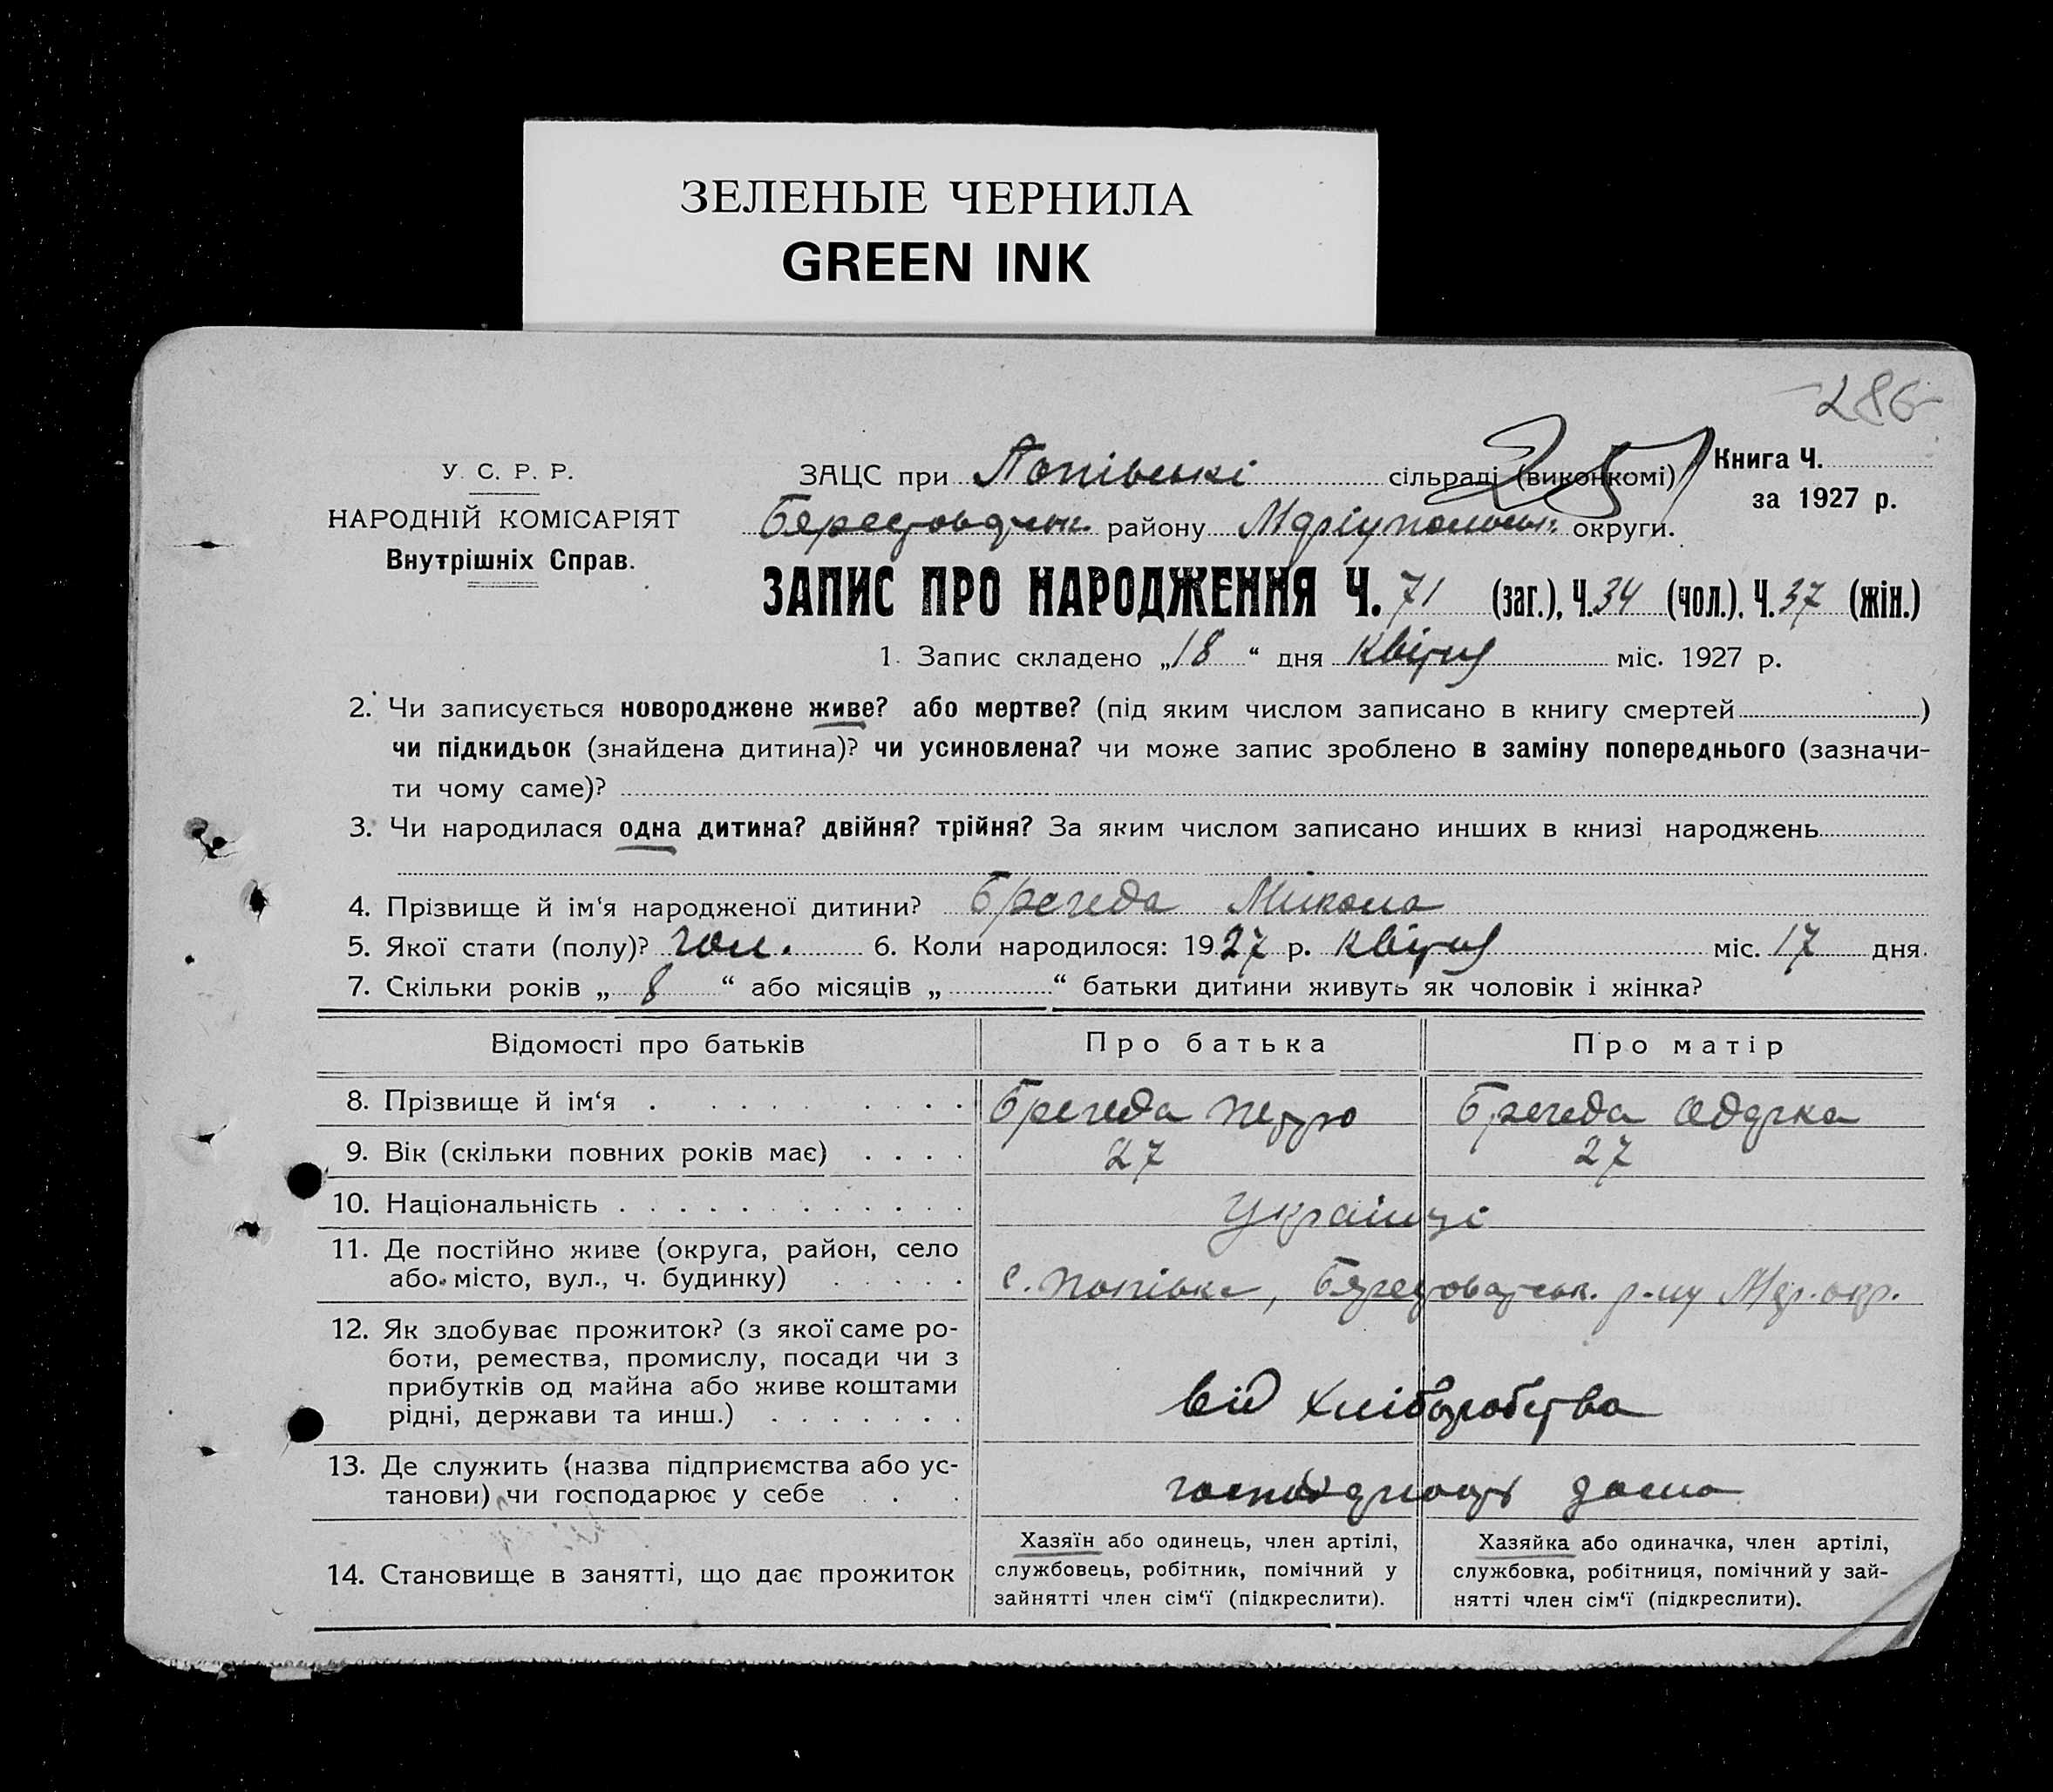 ЗЕЛЕНЫЕ ЧЕРНИЛА
GREEN INK
286
У. С. Р. Р.
НАРОДНІЙ КОМІСАРІЯТ
Внутрішніх Справ.
ЗАЦС при Попівські сільраді (виконкомі)
251
Книга Ч.
за 1927 р.
району Маріупольськ. округи.
ЗАПИС ПРО НАРОДЖЕННЯ Ч. 71 (заг.), Ч. 34 (чол.), Ч. 37 (жін.)
1. Запис складено „18“ дня квітня міс. 1927 р.
2. Чи записується новороджене живе? або мертве? (під яким числом записано в книгу смертей )
чи підкидьок (знайдена дитина)? чи усиновлена? чи може запис зроблено в заміну попереднього (зазначи-
ти чому саме)?
3. Чи народилася одна дитина? двійня? трійня? За яким числом записано инших в книзі народжень
4. Прізвище й ім‘я народженої дитини? Брегеда Микола
5. Якої стати (полу)? чол. 6. Коли народилося: 1927 р. квітня міс. 17 дня.
7. Скільки років „ 8 “ або місяців „ “ батьки дитини живуть як чоловік і жінка?
Відомості про батьків
Про батька
Про матір
8. Прізвище й ім‘я
Брегеда Петро
Брегеда Одарка
9. Вік (скільки повних років має)
27
27
10. Національність
Українці
11. Де постійно живе (округа, район, село
або місто, вул., ч. будинку)
с. Попівка, р-ну Мар. окр.
12. Як здобуває прожиток? (з якої саме ро-
боти, ремества, промислу, посади чи з
прибутків од майна або живе коштами
рідні, держави та инш.)
від хліборобства
13. Де служить (назва підприємства або ус-
танови) чи господарює у себе
дома
14. Становище в занятті, що дає прожиток
Хазяїн або одинець, член артілі,
службовець, робітник, помічний у
зайнятті член сім‘ї (підкреслити).
Хазяйка або одиначка, член артілі,
службовка, робітниця, помічний у зай-
нятті член сім‘ї (підкреслити).